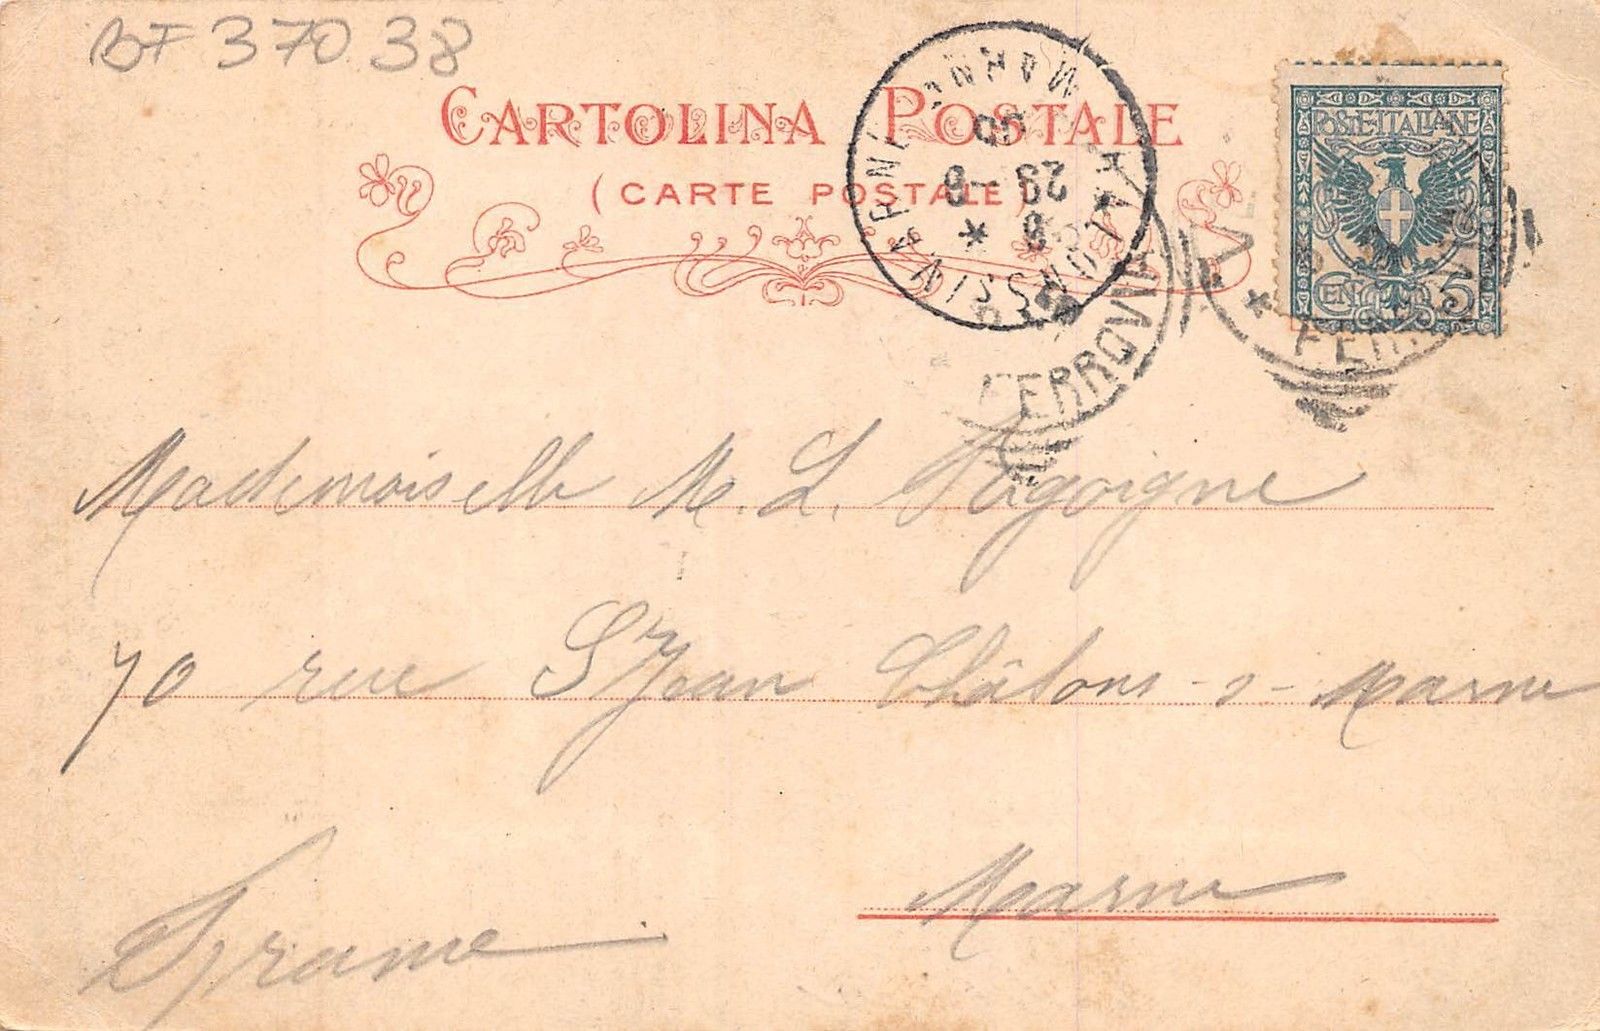 BF 370 38
CARTOLINA POSTALE
(CARTE POSTALE)
POSTE·ITALIANE
CEN. 5
CHALONS S MARNE
8
29 -8
05
FERROVIA
Mademoiselle M. L.
70 rue St Jean Châlons-s-Marne
Marne